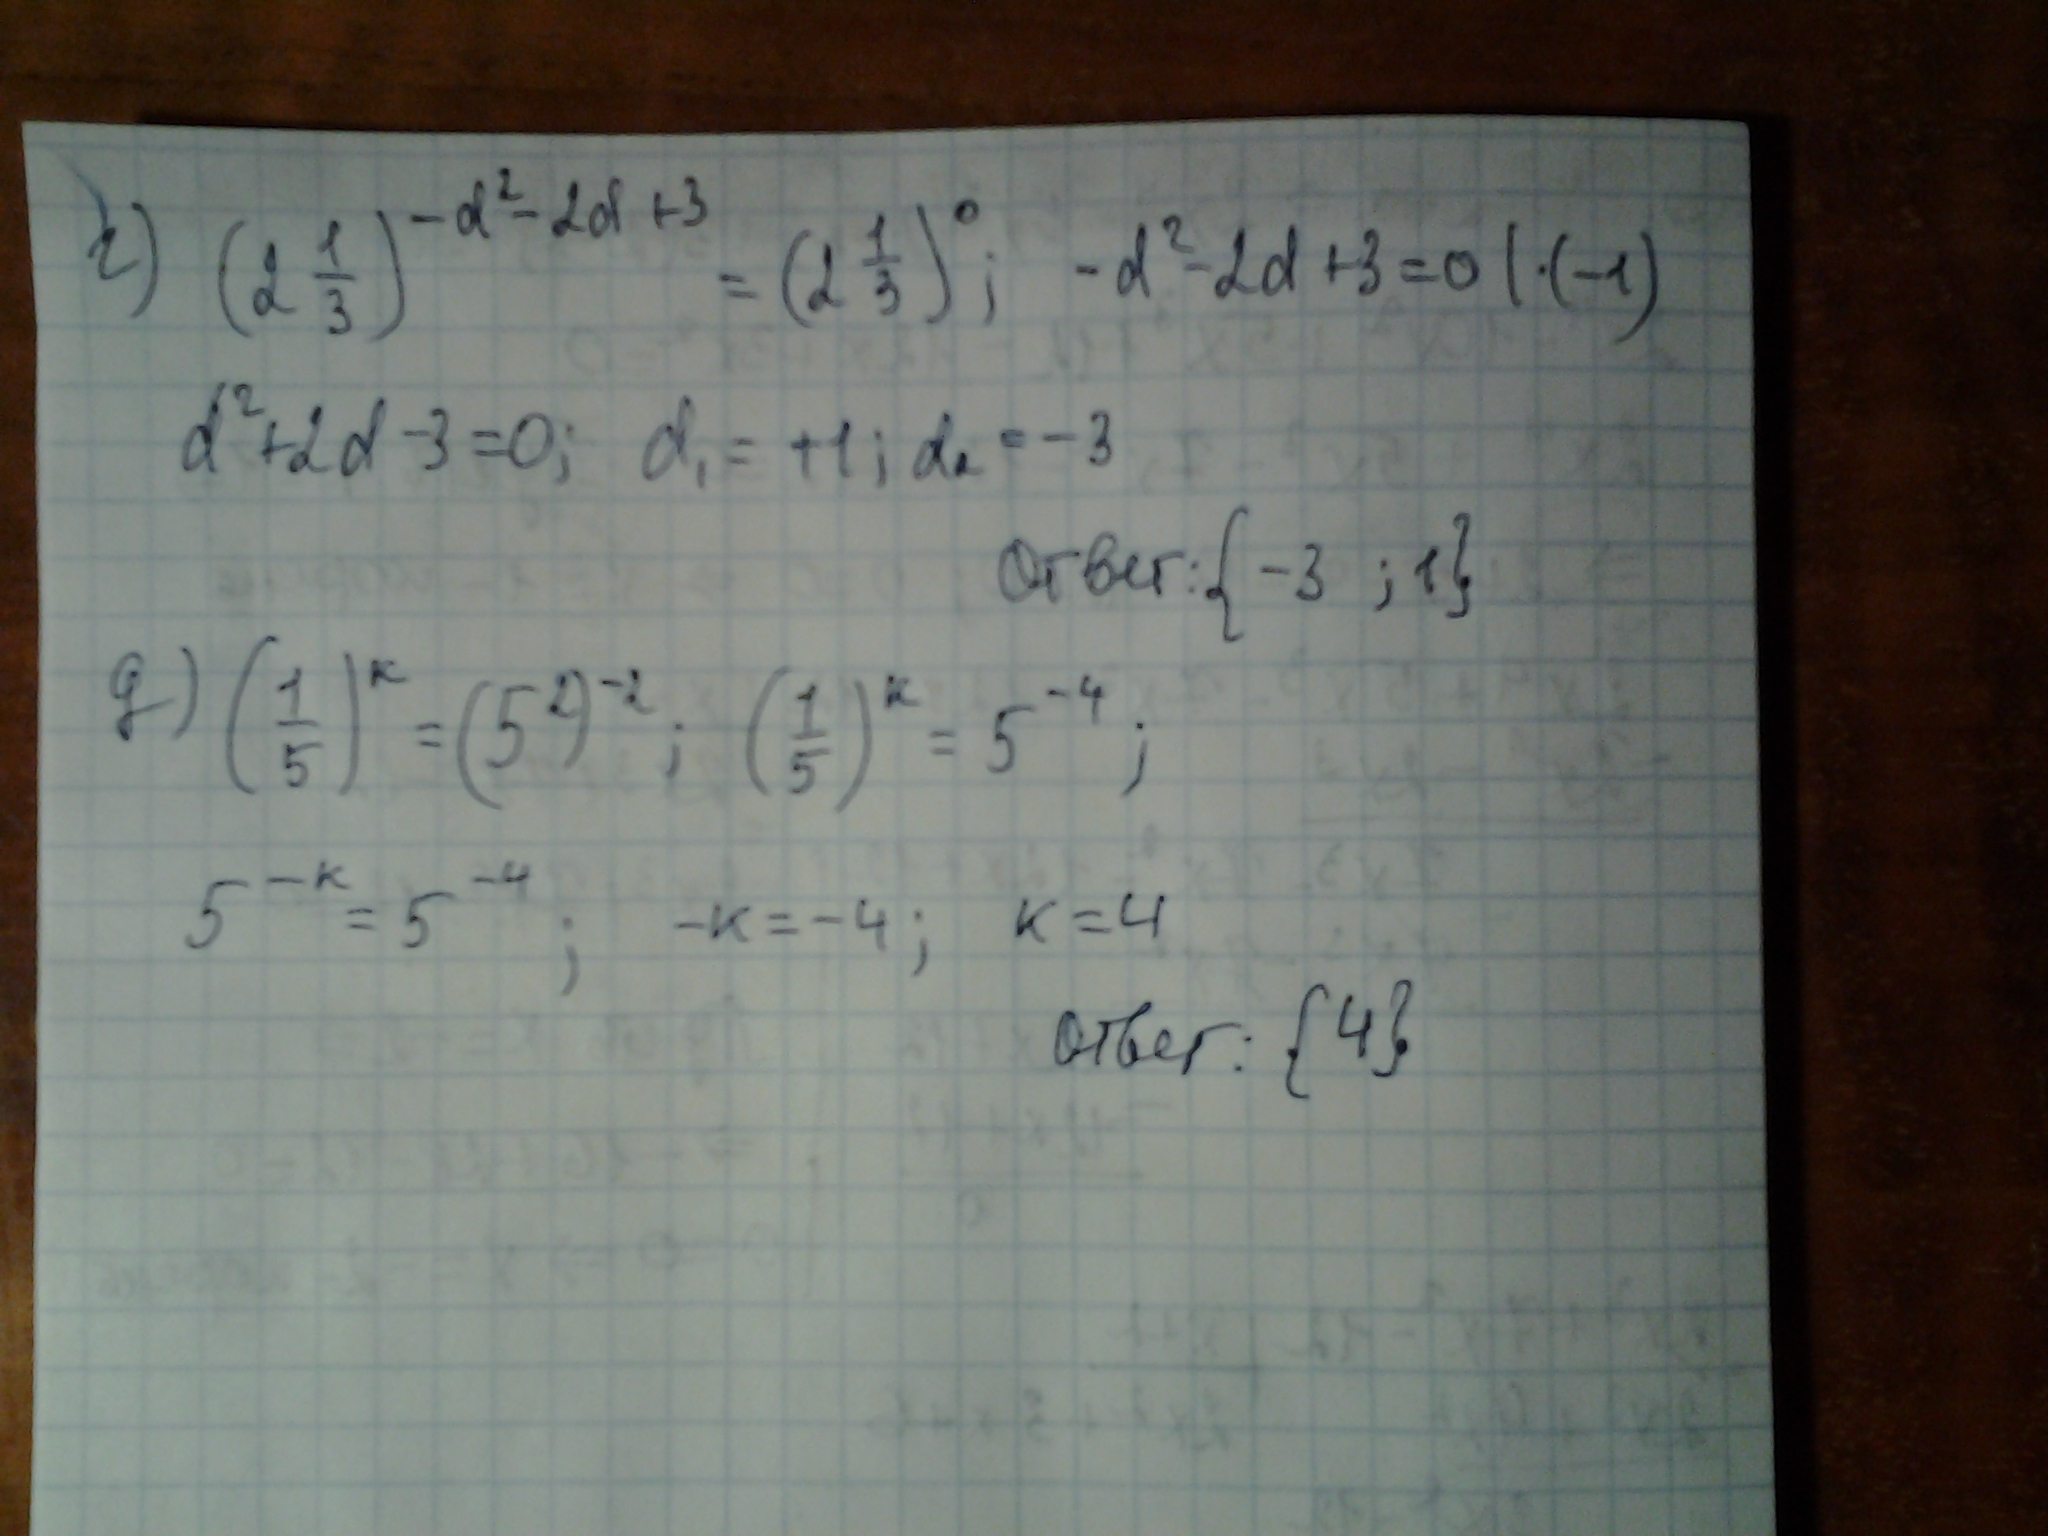 г) (2 1/3)^(-d²-2d+3) = (2 1/3)⁰; -d²-2d+3=0 |·(-1)
d²+2d-3=0; d₁=+1; d₂=-3
Ответ: {-3 ; 1}
д) (1/5)^к = (5²)^(-2); (1/5)^к = 5^(-4);
5^(-к) = 5^(-4); -к=-4; к=4
Ответ: {4}